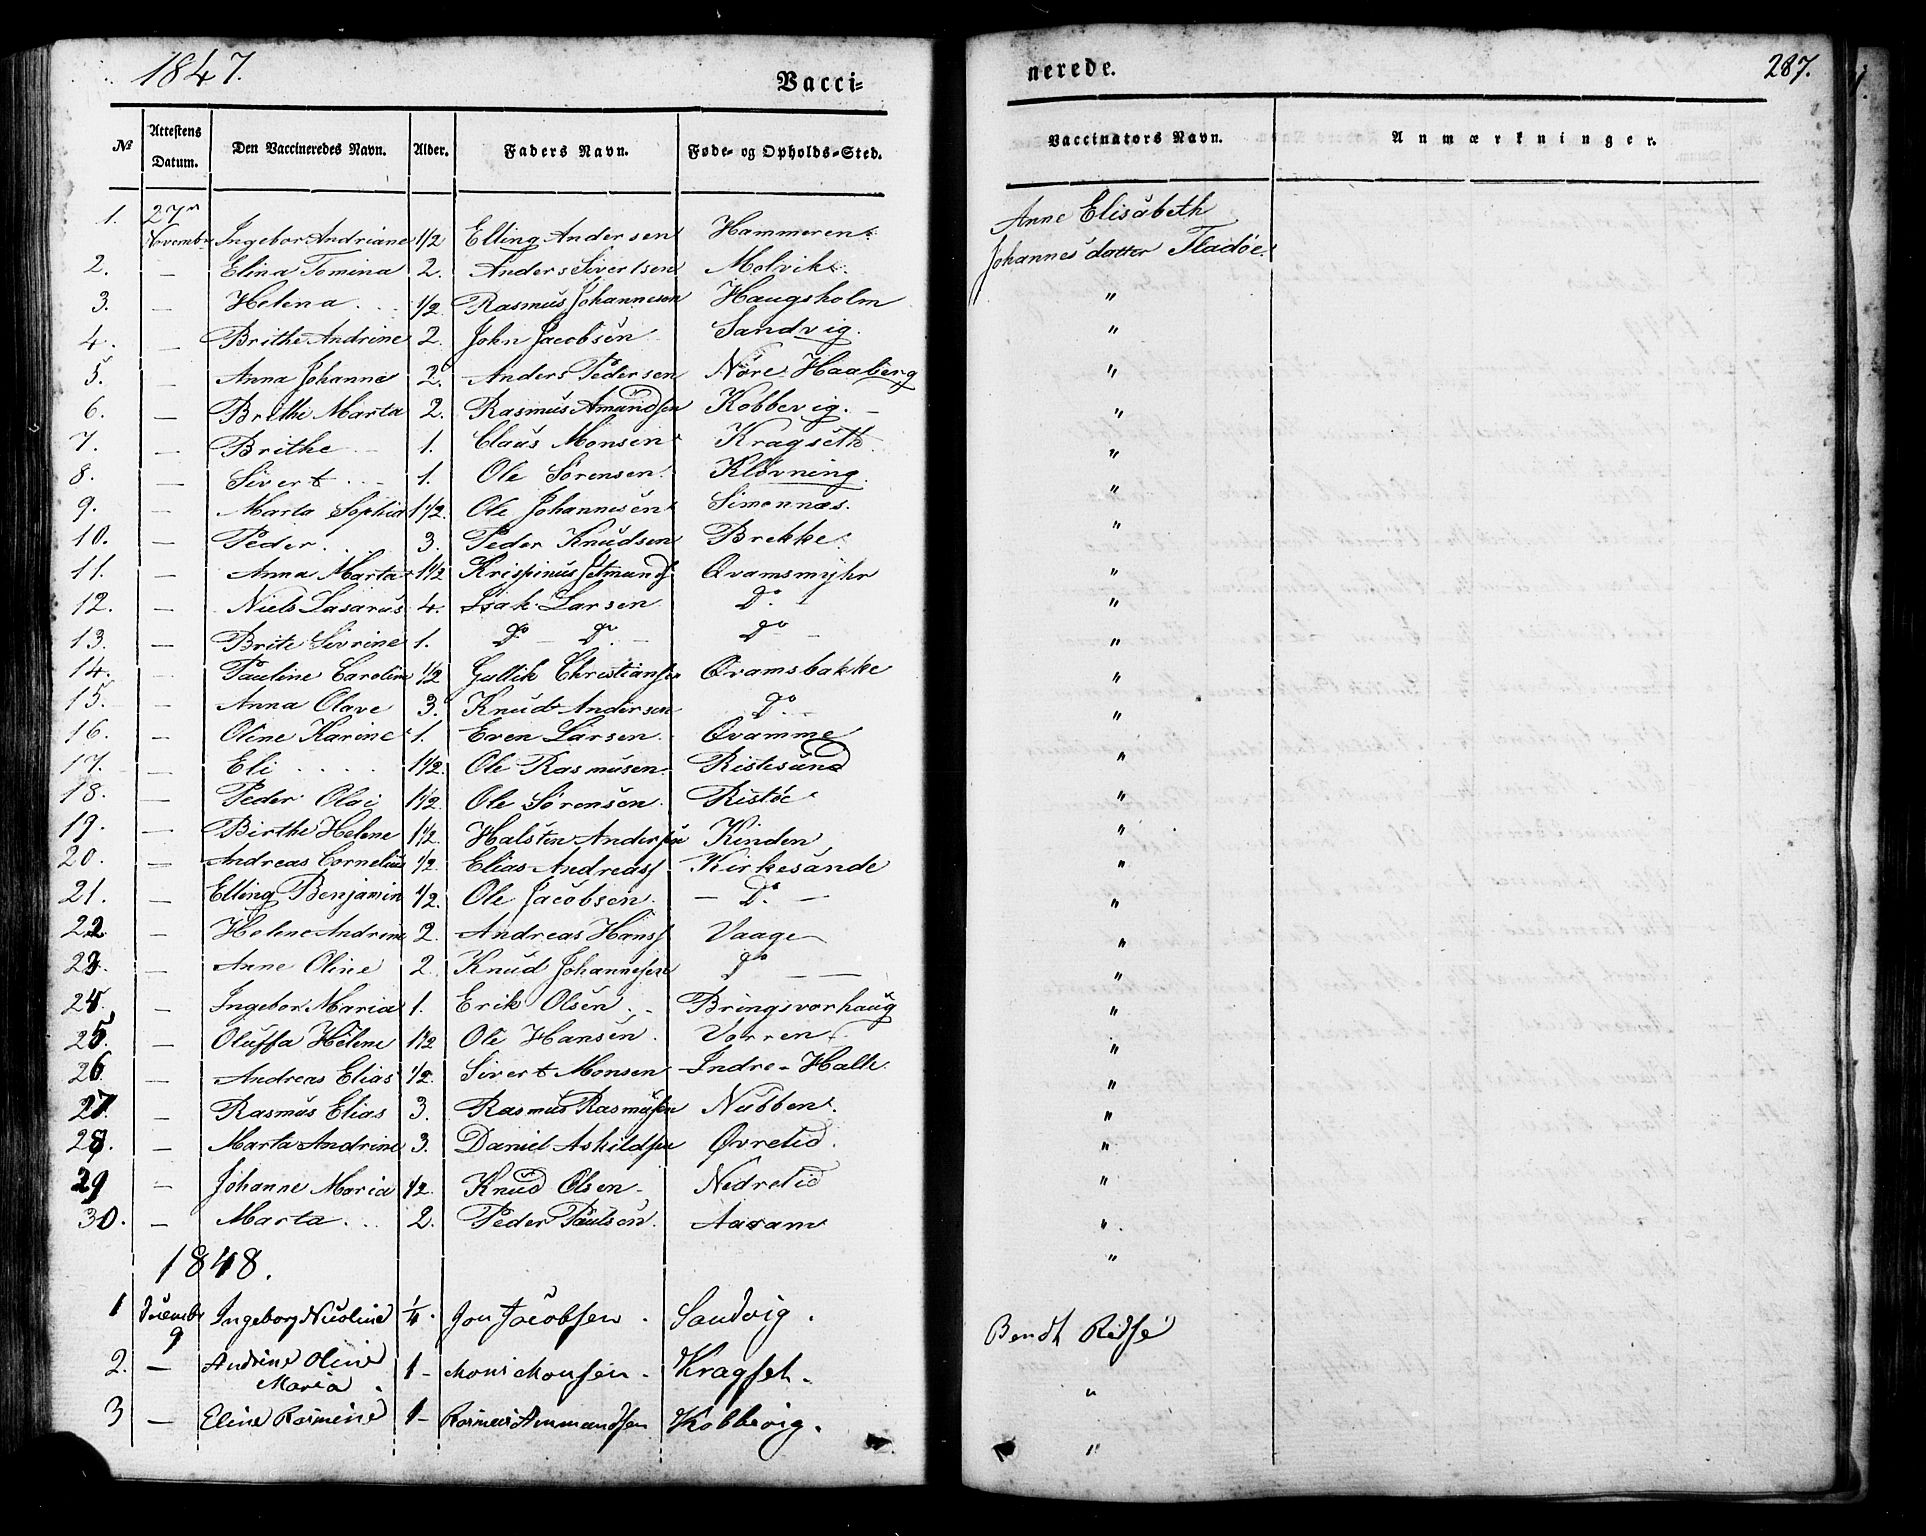 1847.
Vacci=
nerede.
287.
№ Attestens Datum. Den Vaccineredes Navn. Alder. Faders Navn. Føde- og Opholds-Sted. Vaccinators Navn. Anmærkninger.
1. 27n Novembr Ingebor Andriane 1/2 Elling Andersen Hammeren Anne Elisabeth
2. — Elina Tomina 2. Anders Sivertsen Molvik Johannesdatter Fladøe
3. — Helena 1/2 Rasmus Johannesen Haugsholm "
4. — Brithe Andrine 2. John Jacobsen Sandvig. "
5. — Anna Johanne 2. Anders Pedersen Nore Haaberg "
6. — Brithe Marta 2. Rasmus Amundsen Kobbevig. — "
7. — Brithe 1. Claus Monsen Kragseth "
8. — Sivert 1. Ole Sørensen Kløvning. "
9. — Marta Sophia 1 1/2. Ole Johannesen Simonnæs. "
10. — Peder. 3. Peder Knudsen Brekke. "
11. — Anna Marta 1 1/2 Krispinus Jetmunds Qvamsmyhr "
12. — Niels Lasarus 4. Isak Larsen Do. "
13. — Brite Sivrine 1. Do — Do — Do — "
14. — Pauline Caroline 1/2 Gullik Christiansen Qvamsbakke "
15. — Anna Olave 3. Knud Andersen Do. "
16. — Oline Karine 1. Even Larsen Qvamme "
17. — Eli 1 1/2. Ole Rasmusen Ristesund "
18. — Peder Olai 1 1/2. Ole Sørensen. Ristøe "
19. — Birthe Helene 1 1/2. Halsten Andersen Kinden "
20. — Andreas Cornelius 1/2 Elias Andreass Kirkesunde "
21. — Elling Benjamin 1/2. Ole Jacobsen. — Do. — "
22. — Helene Andrine 2. Andreas Hanss Vaage "
23. — Anne Oline 2. Knud Johannesen Do — — "
24. — Ingebor Maria 1. Erik Olsen Bringsvorhaug "
25. — Oluffa Helene 1 1/2 Ole Hansen. Vorren "
26. — Andreas Elias 1/2. Sivert Monsen Indre-Halle "
27. — Rasmus Elias 3. Rasmus Rasmusen Nubben. "
28. — Marta Andrine 3. Daniel Askildsen Øvrelid. "
29 — Johanne Maria 1/2. Knud Olsen Nedrelid "
30. — Marta 2. Peder Paulsen. Aaram "
1848.
1 Decembr 9 Ingeborg Nicoline 1/4. Jon Jacobsen. Sandvig. Bendt Ridse
2. — Andrine Oline Maria. 1 — Mons Monsen — Kragset. "
3 — Eline Rasmine 1 — Rasmus Ammandsen Kobbevig. "